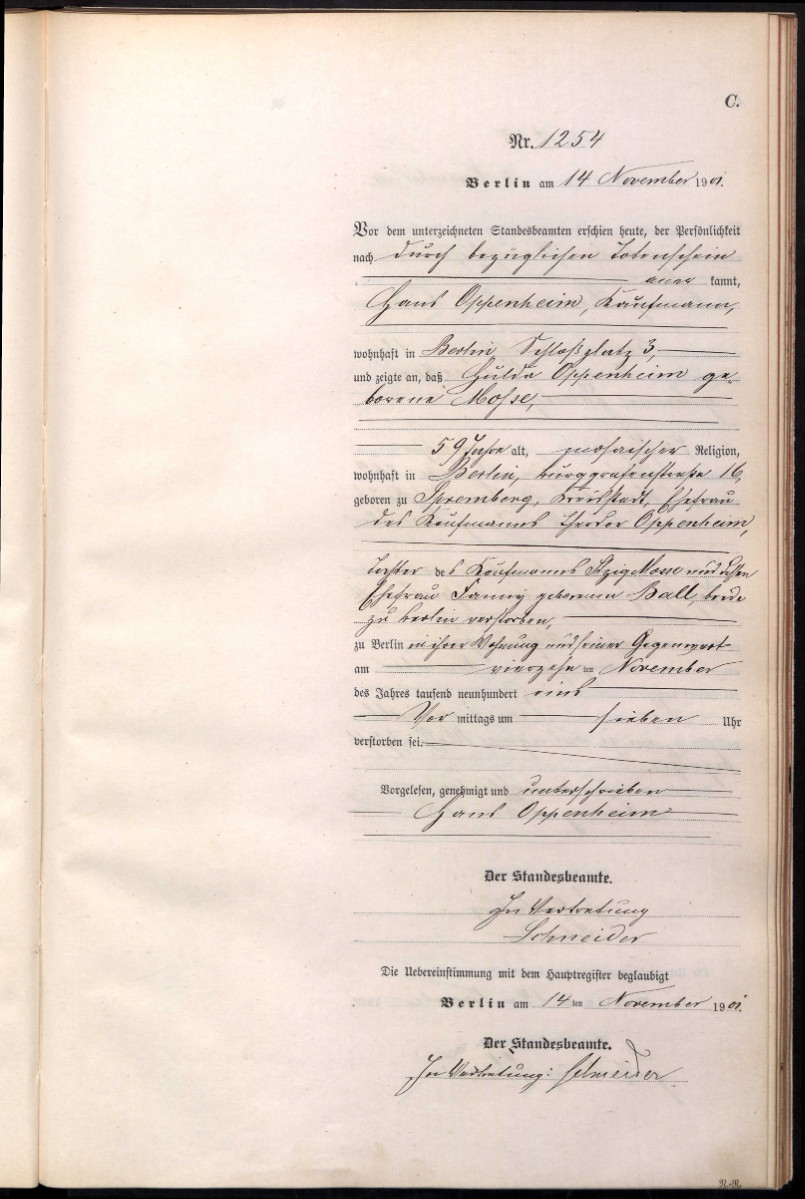 C.
Nr. 1254
Berlin am 14 November 1901.
Vor dem unterzeichneten Standesbeamten erschien heute, der Persönlichkeit
nach durch bezüglichen Totenschein
aner kannt,
Hans Oppenheim, Kaufmann,
wohnhaft in Berlin, Schloßplatz 3,
und zeigte an, daß Hulda Oppenheim ge-
borene Mosse,
59 Jahre alt, mosaischer Religion,
wohnhaft in Berlin, Burggrafenstraße 16,
geboren zu Spremberg, Kreisstadt, Ehefrau
des Kaufmanns Theodor Oppenheim,
Tochter des Kaufmanns Itzig Mosse und dessen
Ehefrau Fanny geborenen Ball, beide
zu Berlin verstorben,
zu Berlin in ihrer Wohnung und seiner Gegenwart
am vierzehn ten November
des Jahres tausend neunhundert eins
Vor mittags um sieben Uhr
verstorben sei.
Vorgelesen, genehmigt und unterschrieben
Hans Oppenheim
Der Standesbeamte.
In Vertretung
Schneider
Die Uebereinstimmung mit dem Hauptregister beglaubigt
Berlin am 14 ten November 1901.
Der Standesbeamte.
In Vertretung: Schneider.